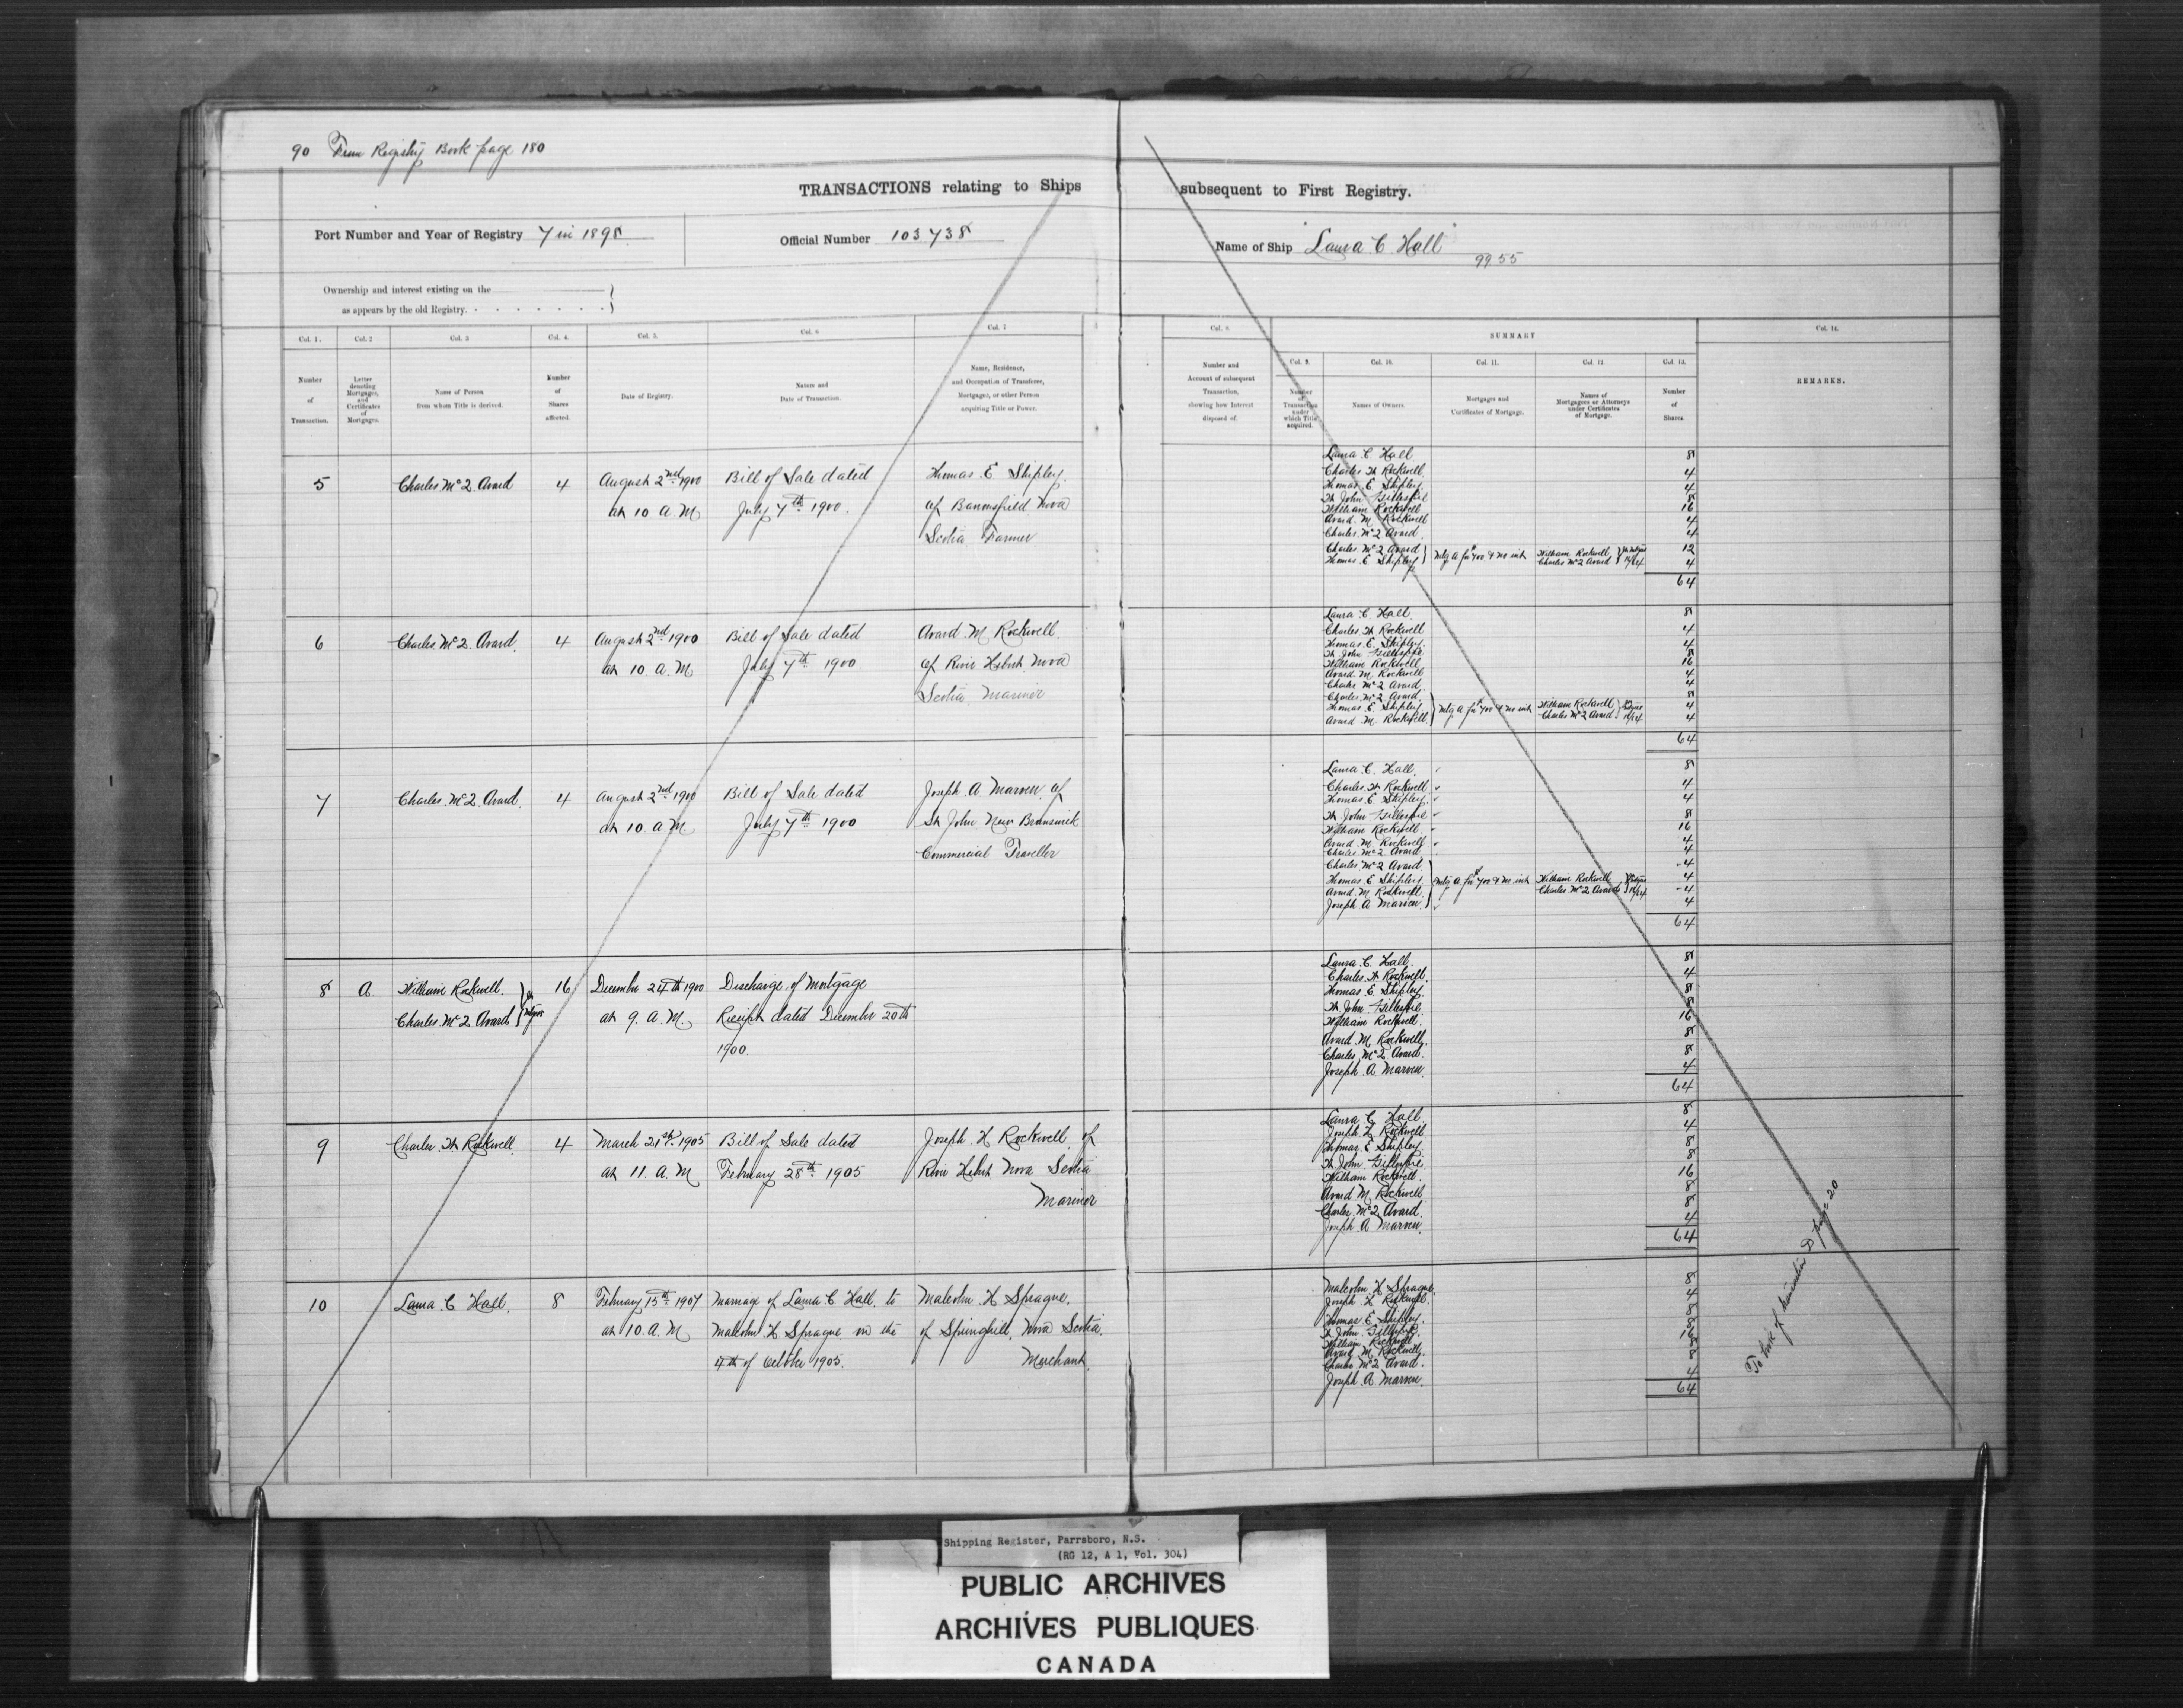 90 From Registry Book page 180
TRANSACTIONS relating to Ships subsequent to First Registry.
Port Number and Year of Registry 7 in 1898
Official Number 103738
Name of Ship "Laura C Hall"
99 55
Ownership and interest existing on the
as appears by the old Registry.
Col. 1. Col. 2 Col. 3 Col. 4. Col. 5. Col. 6 Col. 7
Number of Transaction.
Letter denoting Mortgages, and Certificates of Mortgages.
Name of Person from whom Title is derived.
Number of Shares affected.
Date of Registry.
Nature and Date of Transaction.
Name, Residence, and Occupation of Transferee, Mortgagee, or other Person acquiring Title or Power.
Col. 8. SUMMARY Col. 14.
Col. 9. Col. 10. Col. 11. Col. 12 Col. 13.
Number and Account of subsequent Transaction, showing how Interest disposed of.
Number of Transaction under which Title acquired.
Names of Owners.
Mortgages and Certificates of Mortgage.
Names of Mortgagees or Attorneys under Certificates of Mortgage.
Number of Shares.
REMARKS.
5 Charles McL Avard 4 August 2nd 1900 Bill of Sale dated Thomas E Shipley
at 10 A M July 7th 1900. of Baronsfield Nova
Scotia Farmer
Laura C. Hall 8
Charles W Rockwell 4
Thomas E Shipley 4
H John Gillespie 8
William Rockwell 16
Avard M Rockwell 4
Charles McL Avard 4
Charles McL Avard } Mtg A for $700 & no int William Rockwell } 12
Thomas E Shipley Charles McL Avard 16/64 4
64
6 Charles McL Avard. 4 August 2nd 1900 Bill of Sale dated Avard M Rockwell
at 10. A. M July 7th 1900 of River Hebert, Nova
Scotia Mariner
Laura C. Hall 8
Charles W Rockwell 4
Thomas E. Shipley 4
H John Gillespie 8
William Rockwell 16
Avard M Rockwell 4
Charles McL Avard 4
Charles McL Avard 8
Thomas E Shipley } Mtg A for $700 & no int William Rockwell } 4
Avard M Rockwell Charles McL Avard 16/64 4
64
7 Charles McL Avard. 4 August 2nd 1900 Bill of Sale dated Joseph A Marven of
at 10 A M July 7th 1900 St John New Brunswick
Commercial Traveller
Laura C. Hall 8
Charles W Rockwell 4
Thomas E Shipley 4
H John Gillespie 8
William Rockwell 16
Avard M Rockwell 4
Charles McL Avard 4
Charles McL Avard 4
Thomas E Shipley } Mtg A for $700 & no int William Rockwell } 4
Avard M Rockwell Charles McL Avard 16/64 4
Joseph A Marven 4
64
8 A William Rockwell } 16 December 24th 1900 Discharge of Mortgage
Charles McL Avard at 9. A. M. Receipt dated December 20th
1900
Laura C. Hall 8
Charles W Rockwell 4
Thomas E Shipley 8
H John Gillespie 8
William Rockwell 16
Avard M Rockwell 8
Charles McL Avard 8
Joseph A Marven 4
64
9 Charles W Rockwell 4 March 21st 1905 Bill of Sale dated Joseph H Rockwell of
at 11. A. M February 28th 1905 River Hebert Nova Scotia
Mariner
Laura C Hall 8
Joseph H Rockwell 4
Thomas E Shipley 8
H John Gillespie 8
William Rockwell 16
Avard M Rockwell 8
Charles McL Avard 8
Joseph A Marven 4
64
10 Laura C Hall. 8 February 15th 1907 Marriage of Laura C Hall to Malcolm H Sprague
at 10. A. M Malcolm H Sprague on the of Springhill, Nova Scotia
4th of October 1905. Merchant.
Malcolm H Sprague 8
Joseph H Rockwell 4
Thomas E Shipley 8
H John Gillespie 8
William Rockwell 16
Avard M Rockwell 8
Charles McL Avard 8
Joseph A Marven 4
64
To book of transactions D page 20
Shipping Register, Parrsboro, N.S.
(RG 12, A 1, Vol. 304)
PUBLIC ARCHIVES
ARCHIVES PUBLIQUES
CANADA